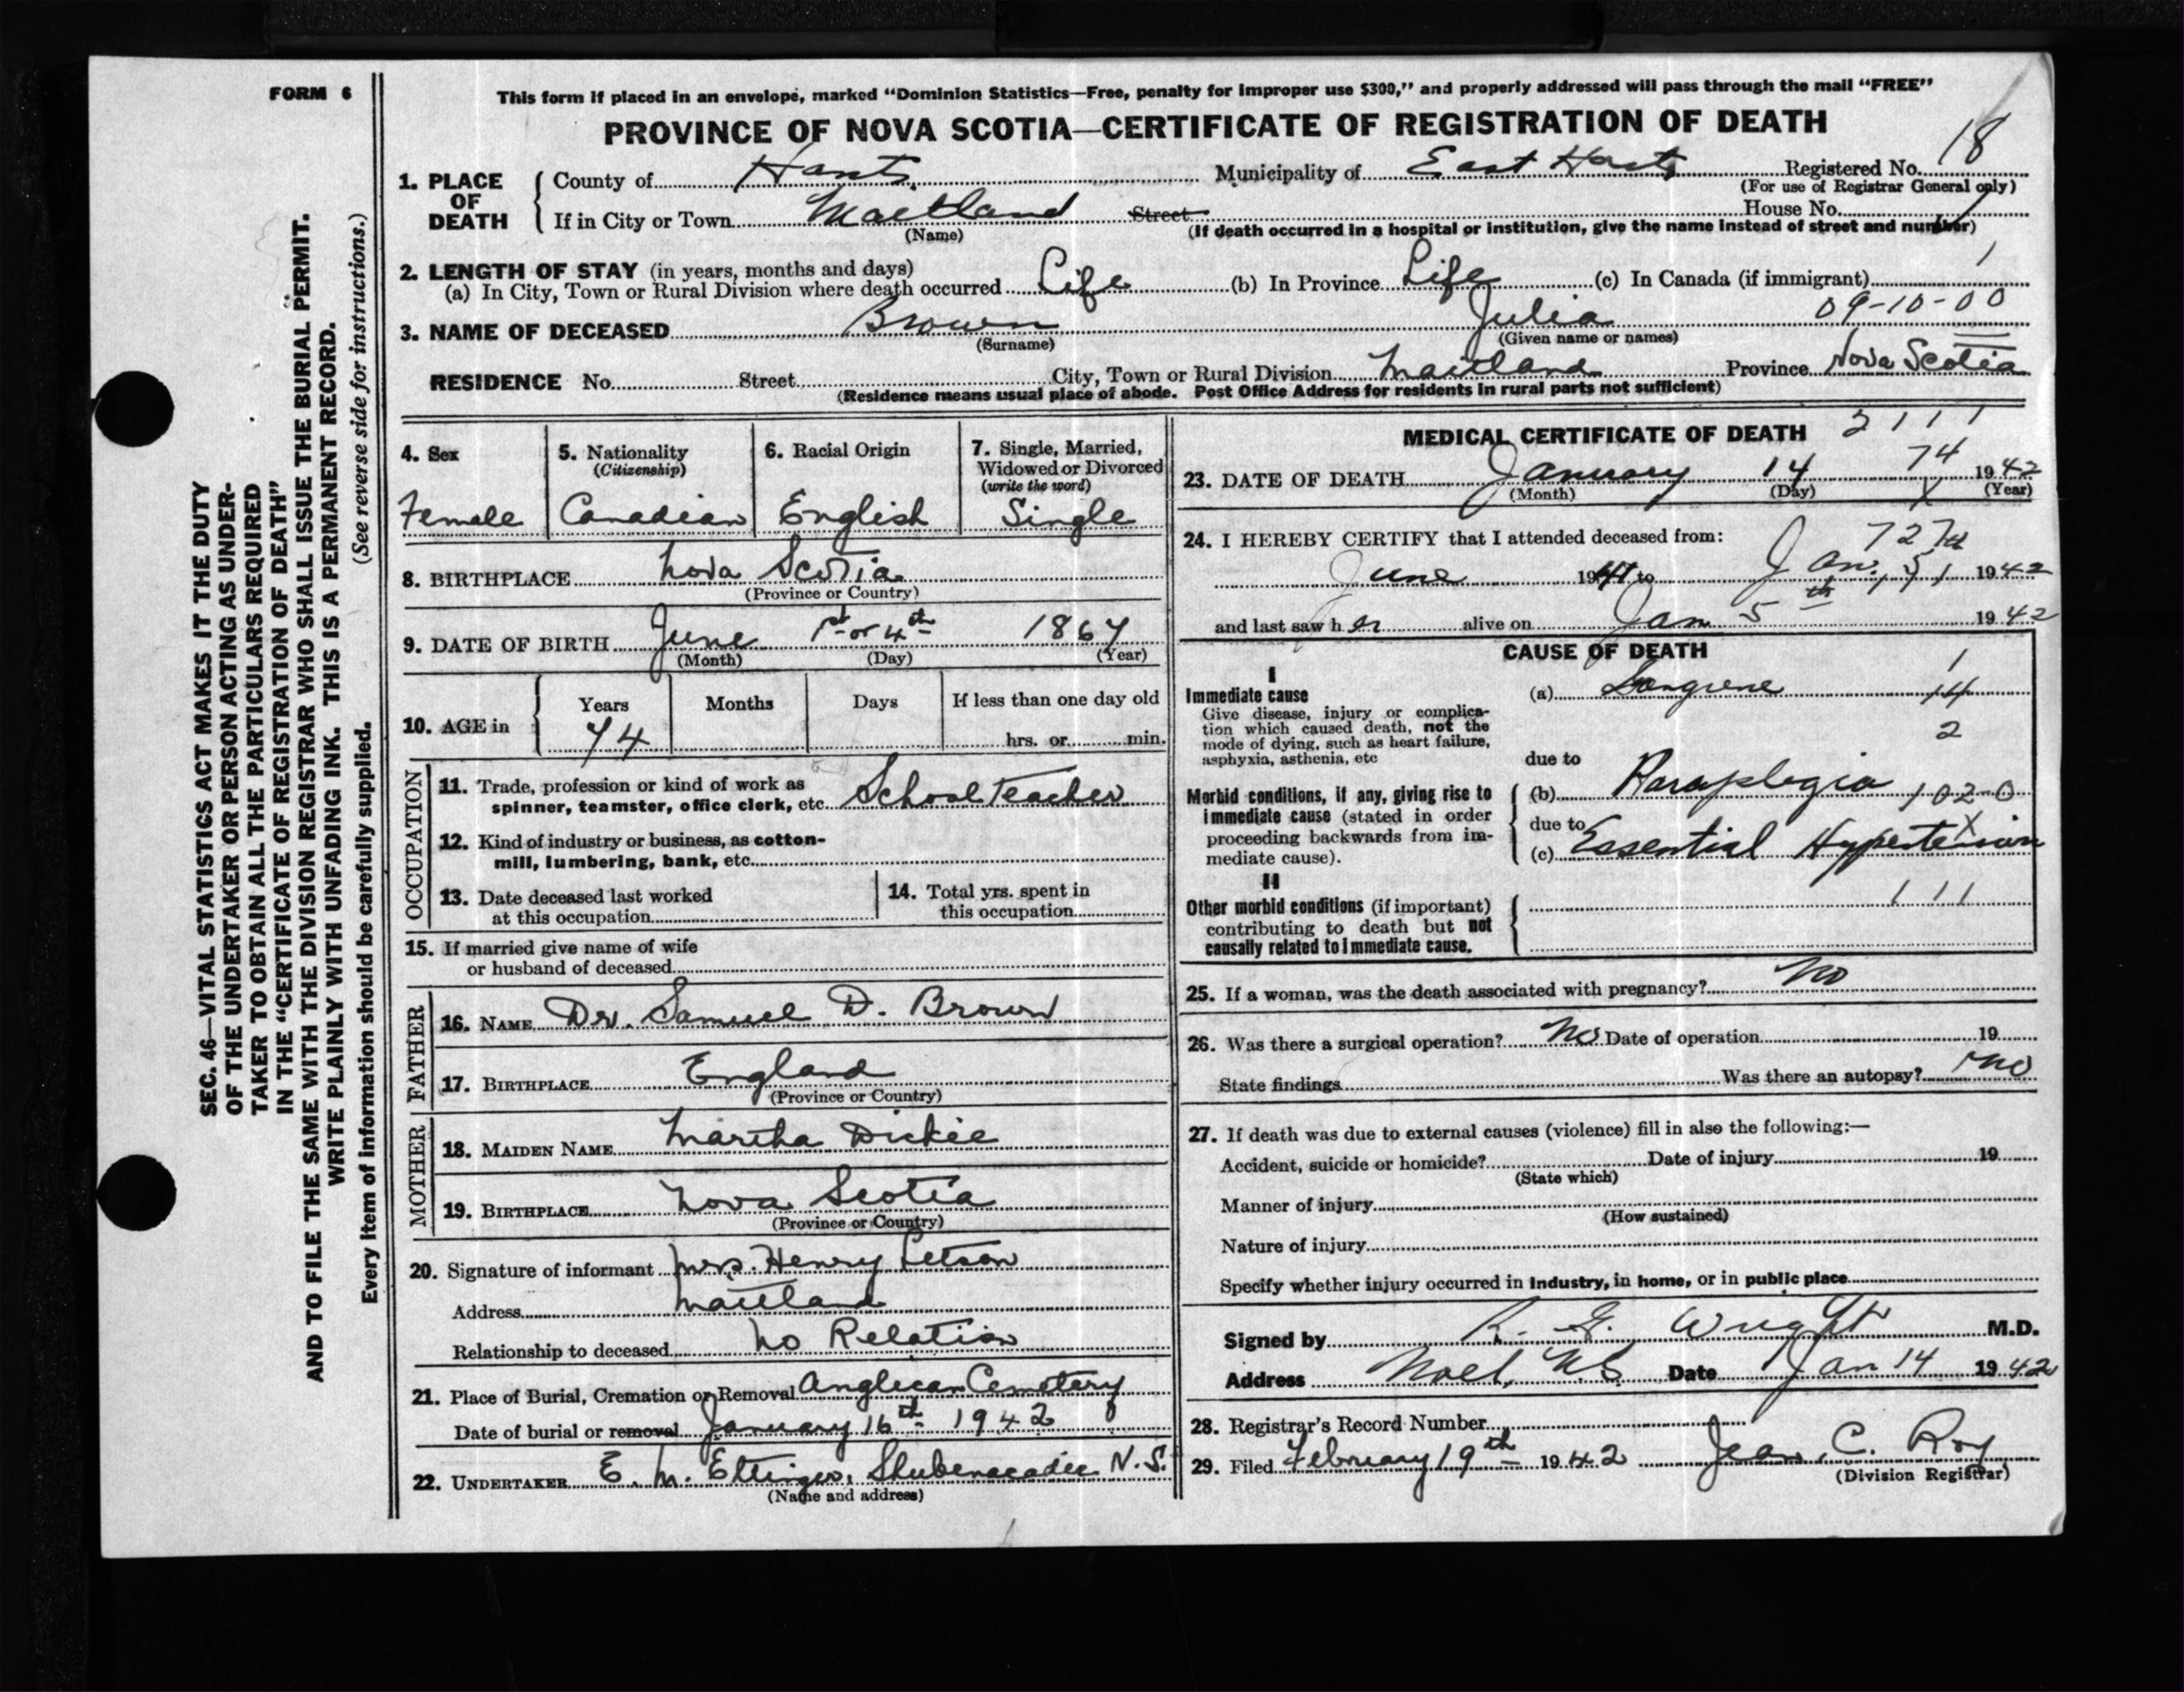 FORM 6
This form if placed in an envelope, marked “Dominion Statistics—Free, penalty for improper use $300,” and properly addressed will pass through the mail “FREE”
PROVINCE OF NOVA SCOTIA—CERTIFICATE OF REGISTRATION OF DEATH
18
1. PLACE OF DEATH { County of Hants Municipality of East Hants Registered No.
(For use of Registrar General only)
If in City or Town Maitland Street House No.
(Name) (If death occurred in a hospital or institution, give the name instead of street and number)
2. LENGTH OF STAY (in years, months and days)
(a) In City, Town or Rural Division where death occurred Life (b) In Province Life (c) In Canada (if immigrant)
09-10-00
3. NAME OF DECEASED Brown Julia
(Surname) (Given name or names)
RESIDENCE No. Street City, Town or Rural Division Maitland Province Nova Scotia
(Residence means usual place of abode. Post Office Address for residents in rural parts not sufficient)
4. Sex
Female
5. Nationality
(Citizenship)
Canadian
6. Racial Origin
English
7. Single, Married,
Widowed or Divorced
(write the word)
Single
8. BIRTHPLACE Nova Scotia
(Province or Country)
9. DATE OF BIRTH June 1st or 4th 1867
(Month) (Day) (Year)
10. AGE in { Years Months Days If less than one day old
74 hrs. or min.
OCCUPATION
11. Trade, profession or kind of work as
spinner, teamster, office clerk, etc. School Teacher
12. Kind of industry or business, as cotton-
mill, lumbering, bank, etc.
13. Date deceased last worked
at this occupation
14. Total yrs. spent in
this occupation
15. If married give name of wife
or husband of deceased
FATHER
16. NAME Dr. Samuel D. Brown
17. BIRTHPLACE England
(Province or Country)
MOTHER
18. MAIDEN NAME Martha Dickie
19. BIRTHPLACE Nova Scotia
(Province or Country)
20. Signature of informant Mrs. Henry Letson
Address Maitland
Relationship to deceased No Relation
21. Place of Burial, Cremation or Removal Anglican Cemetery
Date of burial or removal January 16th 1942
22. UNDERTAKER E. M. Ettinger, Shubenacadie N.S.
(Name and address)
MEDICAL CERTIFICATE OF DEATH 2111
74
23. DATE OF DEATH January 14 1942
(Month) (Day) (Year)
24. I HEREBY CERTIFY that I attended deceased from:
June 1941 to Jan. 1942
and last saw her alive on Jan 5th 1942
CAUSE OF DEATH
I
Immediate cause
Give disease, injury or complica-
tion which caused death, not the
mode of dying, such as heart failure,
asphyxia, asthenia, etc
(a) Gangrene 14
2
due to
Morbid conditions, if any, giving rise to
immediate cause (stated in order
proceeding backwards from im-
mediate cause).
(b) Paraplegia 102-0
due to
(c) Essential Hypertension
II
Other morbid conditions (if important)
contributing to death but not
causally related to immediate cause.
111
25. If a woman, was the death associated with pregnancy? No
26. Was there a surgical operation? No Date of operation 19
State findings Was there an autopsy? No
27. If death was due to external causes (violence) fill in also the following:—
Accident, suicide or homicide? Date of injury 19
(State which)
Manner of injury
(How sustained)
Nature of injury
Specify whether injury occurred in industry, in home, or in public place
Signed by R. G. Wright M.D.
Address Noel, N.S Date Jan 14 1942
28. Registrar's Record Number
29. Filed February 19th 1942 Jean C. Roy
(Division Registrar)
SEC. 46—VITAL STATISTICS ACT MAKES IT THE DUTY
OF THE UNDERTAKER OR PERSON ACTING AS UNDER-
TAKER TO OBTAIN ALL THE PARTICULARS REQUIRED
IN THE “CERTIFICATE OF REGISTRATION OF DEATH”
AND TO FILE THE SAME WITH THE DIVISION REGISTRAR WHO SHALL ISSUE THE BURIAL PERMIT.
WRITE PLAINLY WITH UNFADING INK. THIS IS A PERMANENT RECORD.
Every item of information should be carefully supplied. (See reverse side for instructions.)